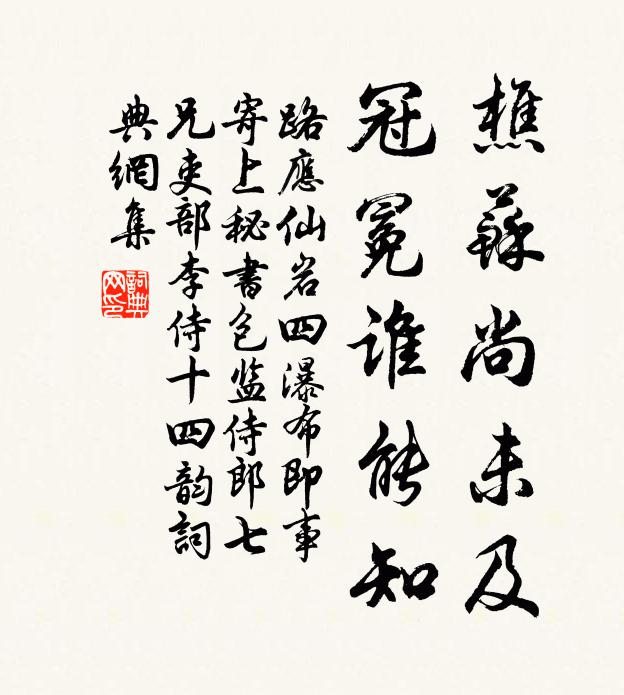 樵蘇尚未及
冠冕谁能知
路應仙岩四瀑布即事
寄上秘書包监侍郎七
兄吏部李侍十四韵詞
典網集
詞典
网印